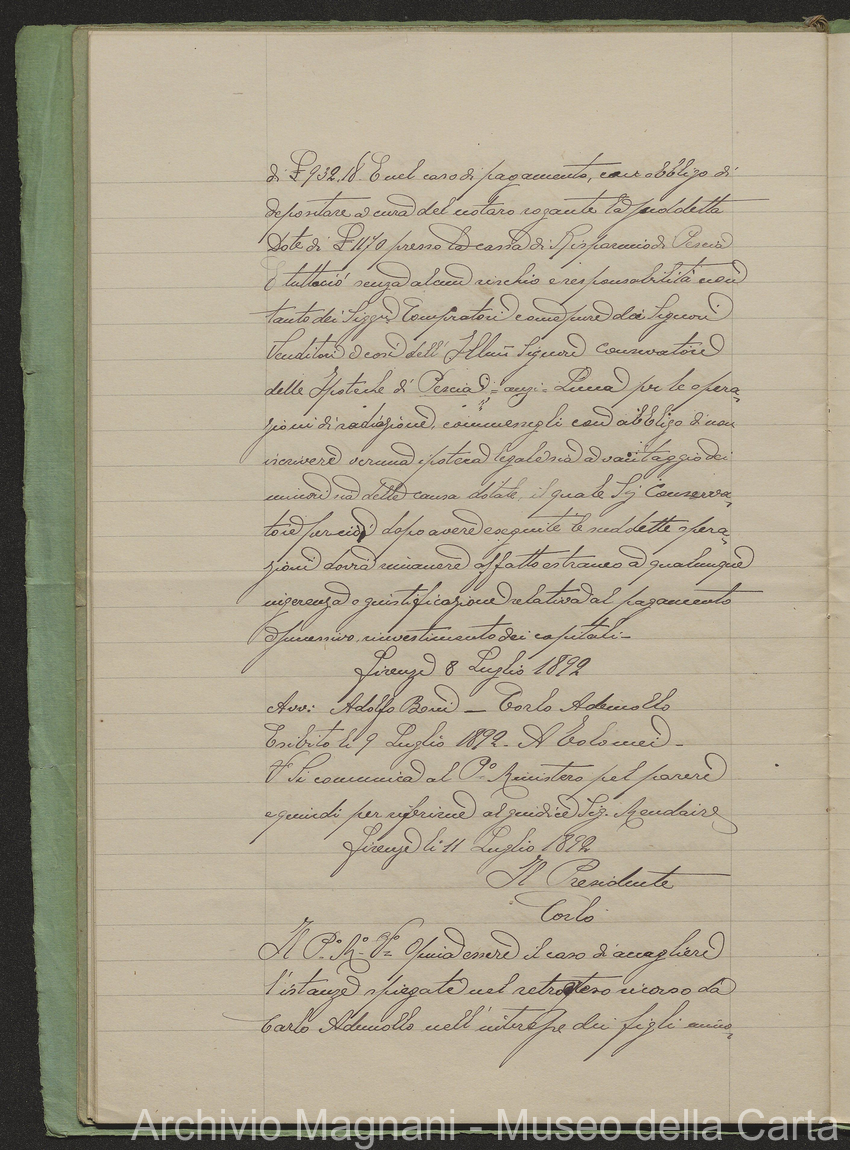 di £ 932.18. E nel caso di pagamento, con obbligo di
depositare a cura del notaro rogante la suddetta
Dote di £ 1170 presso la cassa di Risparmio di Pescia
E tuttociò senza alcun rischio e responsabilità non
tanto dei Sigg.ri Compratori come pure dei Signori
Venditori e così dell' Ill.mo Signore Conservatore
delle Ipoteche di Pescia = anzi = Lucca per le opera=
zioni di radiazione, commessegli con obbligo di non
iscrivere veruna ipoteca legale sia a vantaggio dei
minori sia della causa dotale, il quale Sig. Conserva=
tore perciò dopo avere eseguite le suddette opera=
zioni dovrà rimanere affatto estraneo a qualunque
ingerenza o giustificazione relativa al pagamento
e successivo rinvestimento dei capitali -
Firenze 8 Luglio 1892
Avv: Adolfo Boni - Carlo Ademollo
Esibito li 9 Luglio 1892 - A Tolomei -
Si comunica al P.o Ministero pel parere
e quindi per riferirne al giudice Sig.
Firenze li 11 Luglio 1892
Il Presidente
Il P.o M.o Opina essere il caso di accogliere
l'istanze spiegate nel retroesteso ricorso da
Carlo Ademollo nell'interesse dei figli mino=
Archivio Magnani - Museo della Carta